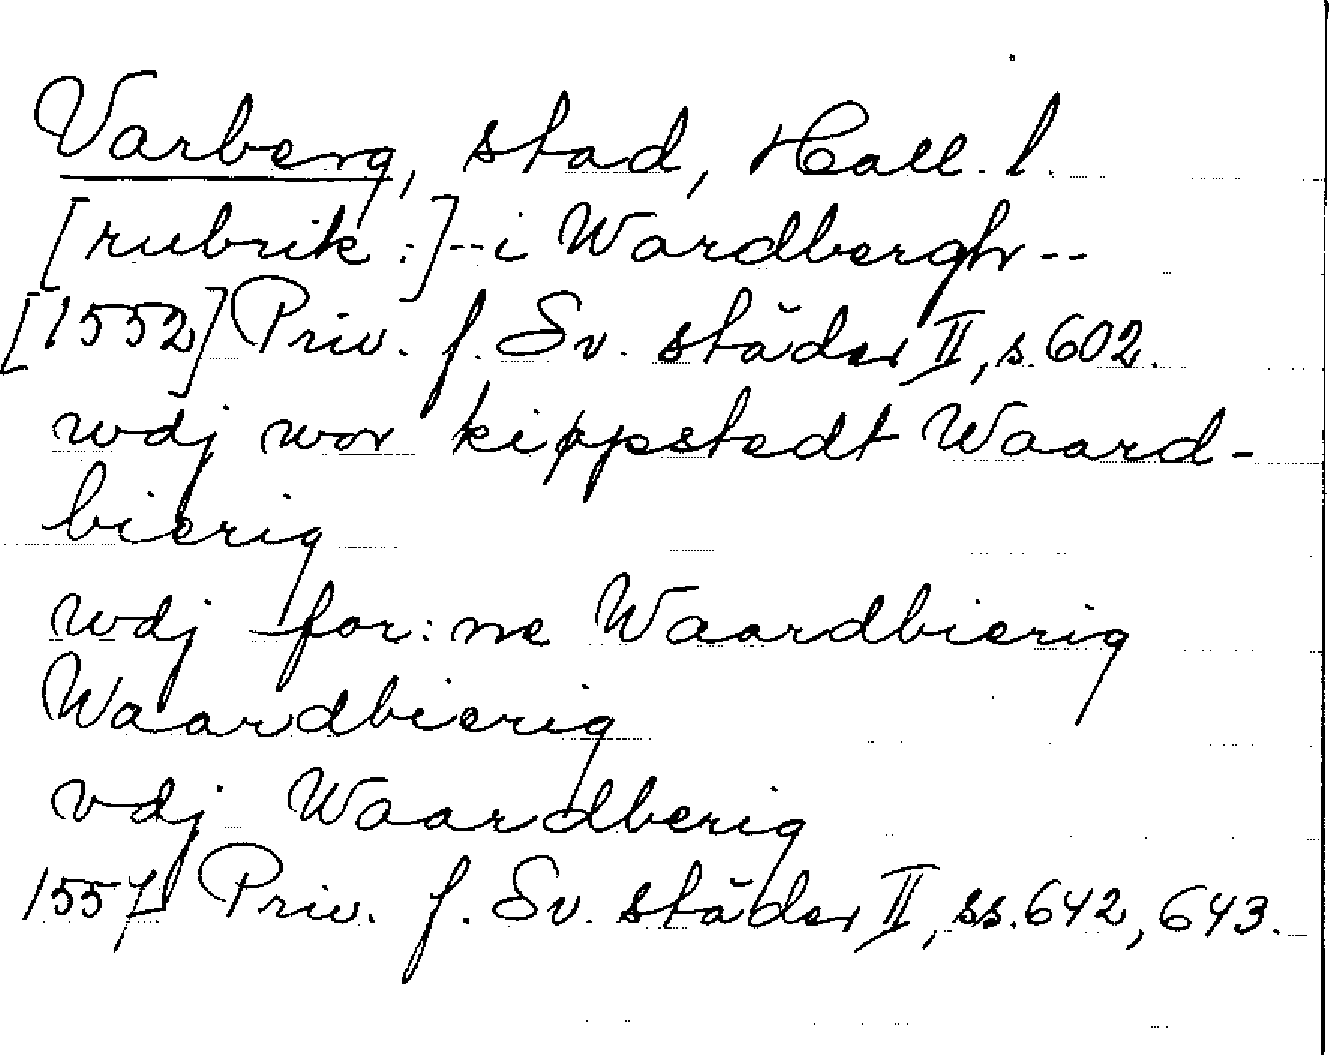 Varberg, stad, Hall. l.
[rubrik:]--i Wardbergh--
[1552] Priv. f. Sv. städer II, s. 602.
wdj wor kippstedt Waard-
bierig
wdj for:ne Waardbierig
Waardbierig
vdj Waardberig
1557 Priv. f. Sv. städer II, ss. 642, 643.